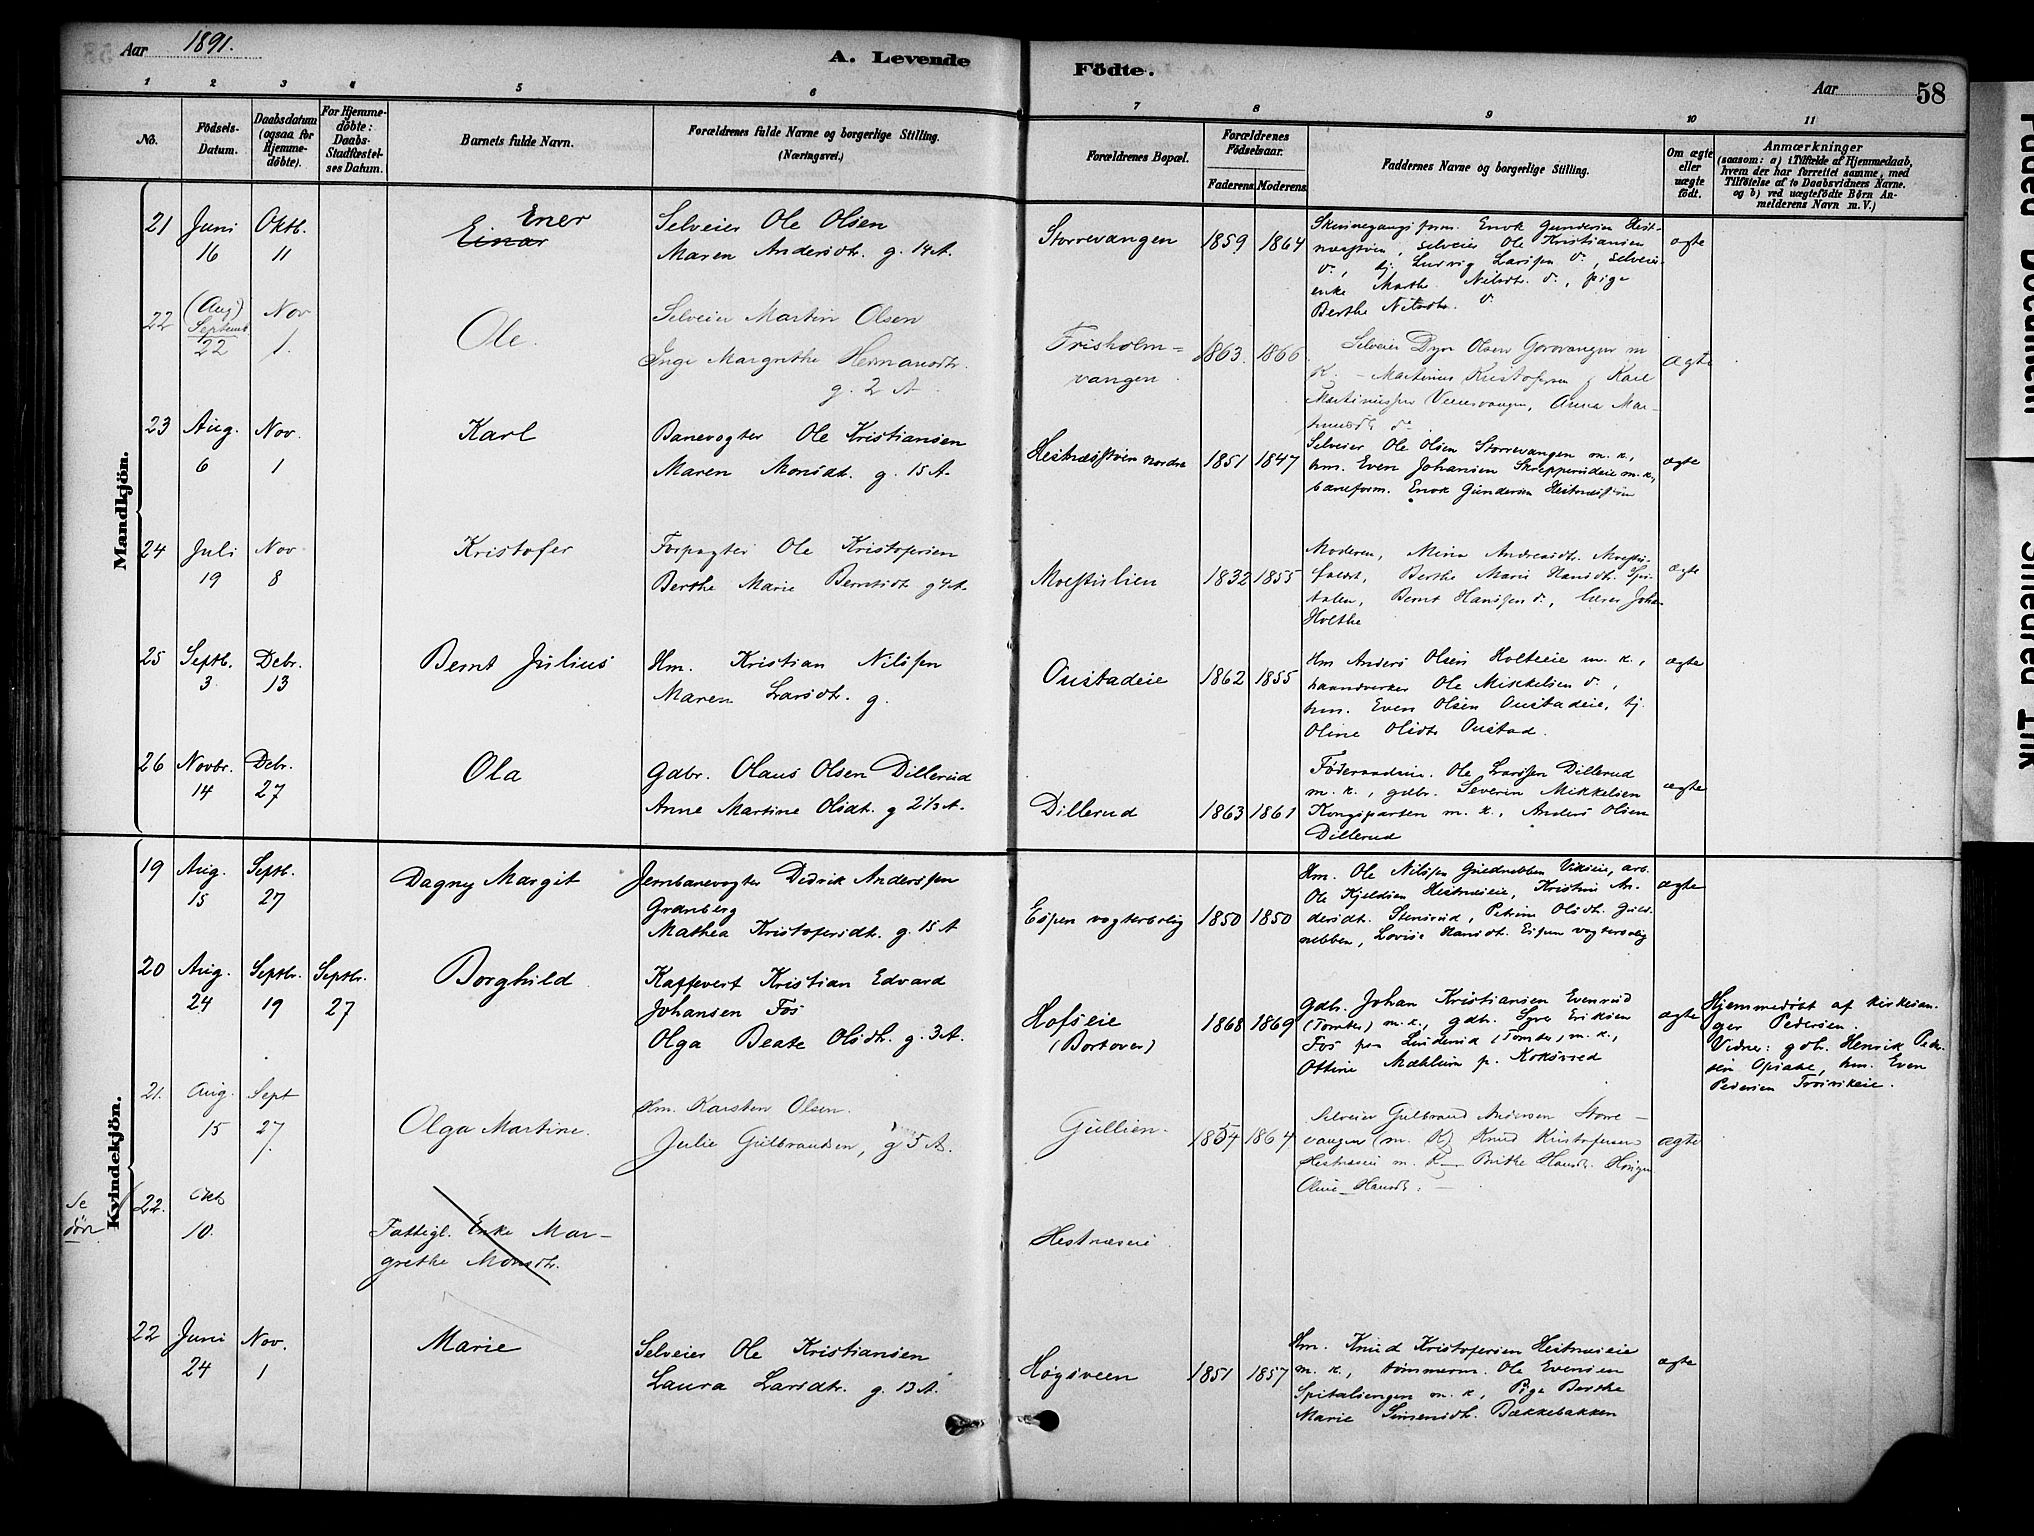 Aar 1891.
A. Levende Födte.
Aar
58
1 2 3 4 5 6 7 8 9 10 11
No.
Födsels-Datum.
Daabsdatum (ogsaa for Hjemme-döbte).
For Hjemme-döbte: Daabs-Stadfæstel-ses Datum.
Barnets fulde Navn.
Forældrenes fulde Navne og borgerlige Stilling.
(Næringsvei.)
Forældrenes Bopæl.
Forældrenes Födselsaar.
Faderens Moderens
Faddernes Navne og borgerlige Stilling.
Om ægte eller uægte födt.
Anmærkninger
(saasom: a) i Tilfælde af Hjemmedaab,
hvem der har forrettet samme, med
Tilföielse af to Daabsvidners Navne.
og b) ved uægtefödte Börn An-
melderens Navn m. V.)
Mandkjön.
21 Juni 16 Oktb. 11
Ener
Einar
Selveier Ole Olsen
Maren Andersdtr. g. 14 A.
Storrevangen 1859 1864
Enok Gundersen
selveier Ole Kristiansen
d., tj. Ludvig Larssen d., selveier-
enke Marthe Nilsdtr. d., pige
Berthe Nilsdtr. d.
ægte
22 (Aug) Septemb 22 Nov 1.
Ole.
Selveier Martin Olsen
Inge Margrethe Hermansdtr.
g. 2 A
Frisholm-
vangen. 1863. 1866
Selveier Olsen m
K. - Martinus Kristofersen Karl
Martinussen Anna Mar-
d.
ægte
23 Aug. 6 Nov. 1
Karl
Banevogter Ole Kristiansen
Maren Monsdt. g. 15 A.
nordre 1851 1847
Selveier Ole Olsen Storrevangen m. k.,
hm. Even Johansen m. k.,
baneform. Enok Gundersen
ægte
24 Juli 19 Nov 8
Kristofer
Forpagter Ole Kristofersen
Berthe Marie Berntsdt. g 4 A.
Moestulien 1832 1855
Moderen, Mina Andreasdtr.
Berthe Marie Hansdtr.
Bernt Hanssen d., lærer Johan
Holthe
ægte
25 Septb. 3 Debr. 13
Bernt Julius
Hm. Kristian Nilssen
Maren Larsdtr. g.
Oustadeie 1862 1855
Hm Anders Olsen Holteeie m. k.,
haandverker Ole Mikkelsen d.,
hm. Even Olsen Oustadeie, tj.
Oline Olsdtr Oustad.
ægte
26 Novbr. 14 Debr. 27
Ola
Gdbr. Olaus Olsen Dillerud
Anne Martine Olsdt. g 2 1/2 A.
Dillerud 1863 1861
Ole Larssen Dillerud
m. k., gdbr. Severin Mikkelsen
Kongsparten m. k., Anders Olsen
Dillerud
ægte
Kvindekjön.
19 Aug. 15 Septb. 27
Dagny Margit
Jernbanevogter Didrik Anderssen
Granberg
Mathea Kristofersdt. g. 15 A
Espen vogterbolig 1850 1850
Hm. Ole Nilssen Vikseie, arb.
Ole Kjeldsen Hestnæseie, Kristine An-
dersdt. Stensrud, Petrine Olsdt.
nebben, Lovise Hansdt. Espen vogterbolig
ægte
20 Aug. 24 Septbr. 19 Septbr. 27
Borghild
Kaffevert Kristian Edvard
Johansen Fos
Olga Beate Olsdtr. g. 3 A.
Hofseie
(Bortover) 1868 1869
Gdb. Johan Kristiansen Evenrud
(Tomter) m. k., gdbr. Syver Eriksen
Fos paa Linderud (Tomter) m. k.,
Ottine Mæhlum p. Koksrud
ægte
Hjemmedøbt af kirkesan-
ger Pedersen.
Vidner: gdb. Henrik Peder-
sen Opsahl, hm. Even
Pedersen
21. Aug. 15 Sept 27.
Olga Martine.
Hm. Karsten Olsen.
Julie Gulbrandsen, g 5 A.
Gullien. 1854 1864
Selveier Gulbrand Andersen Storre-
vangen (m. K) Knud Kristofersen
Hestnæseie m. K Hansdtr.
Oline Hansdtr.
ægte
Se
døde
22. Okt 10.
Fattigl. Enke Mar-
grethe Monsdtr.
Hestnæseie
22 Juni 24 Nov. 1
Marie
Selveier Ole Kristiansen
Laura Larsdtr. g. 13 A.
Høgsveen 1851 1857
Hm. Knud Kristofersen Hestnæseie
m. k., tømmerm. Ole Evensen
Spitalsengen m. k., Pige Berthe
Marie Simensdtr. Bækkebakken
ægte
Faded Document
Smeared Ink